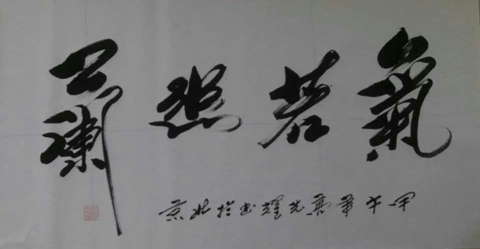 氣若幽蘭
甲午年夏光耀书於北京